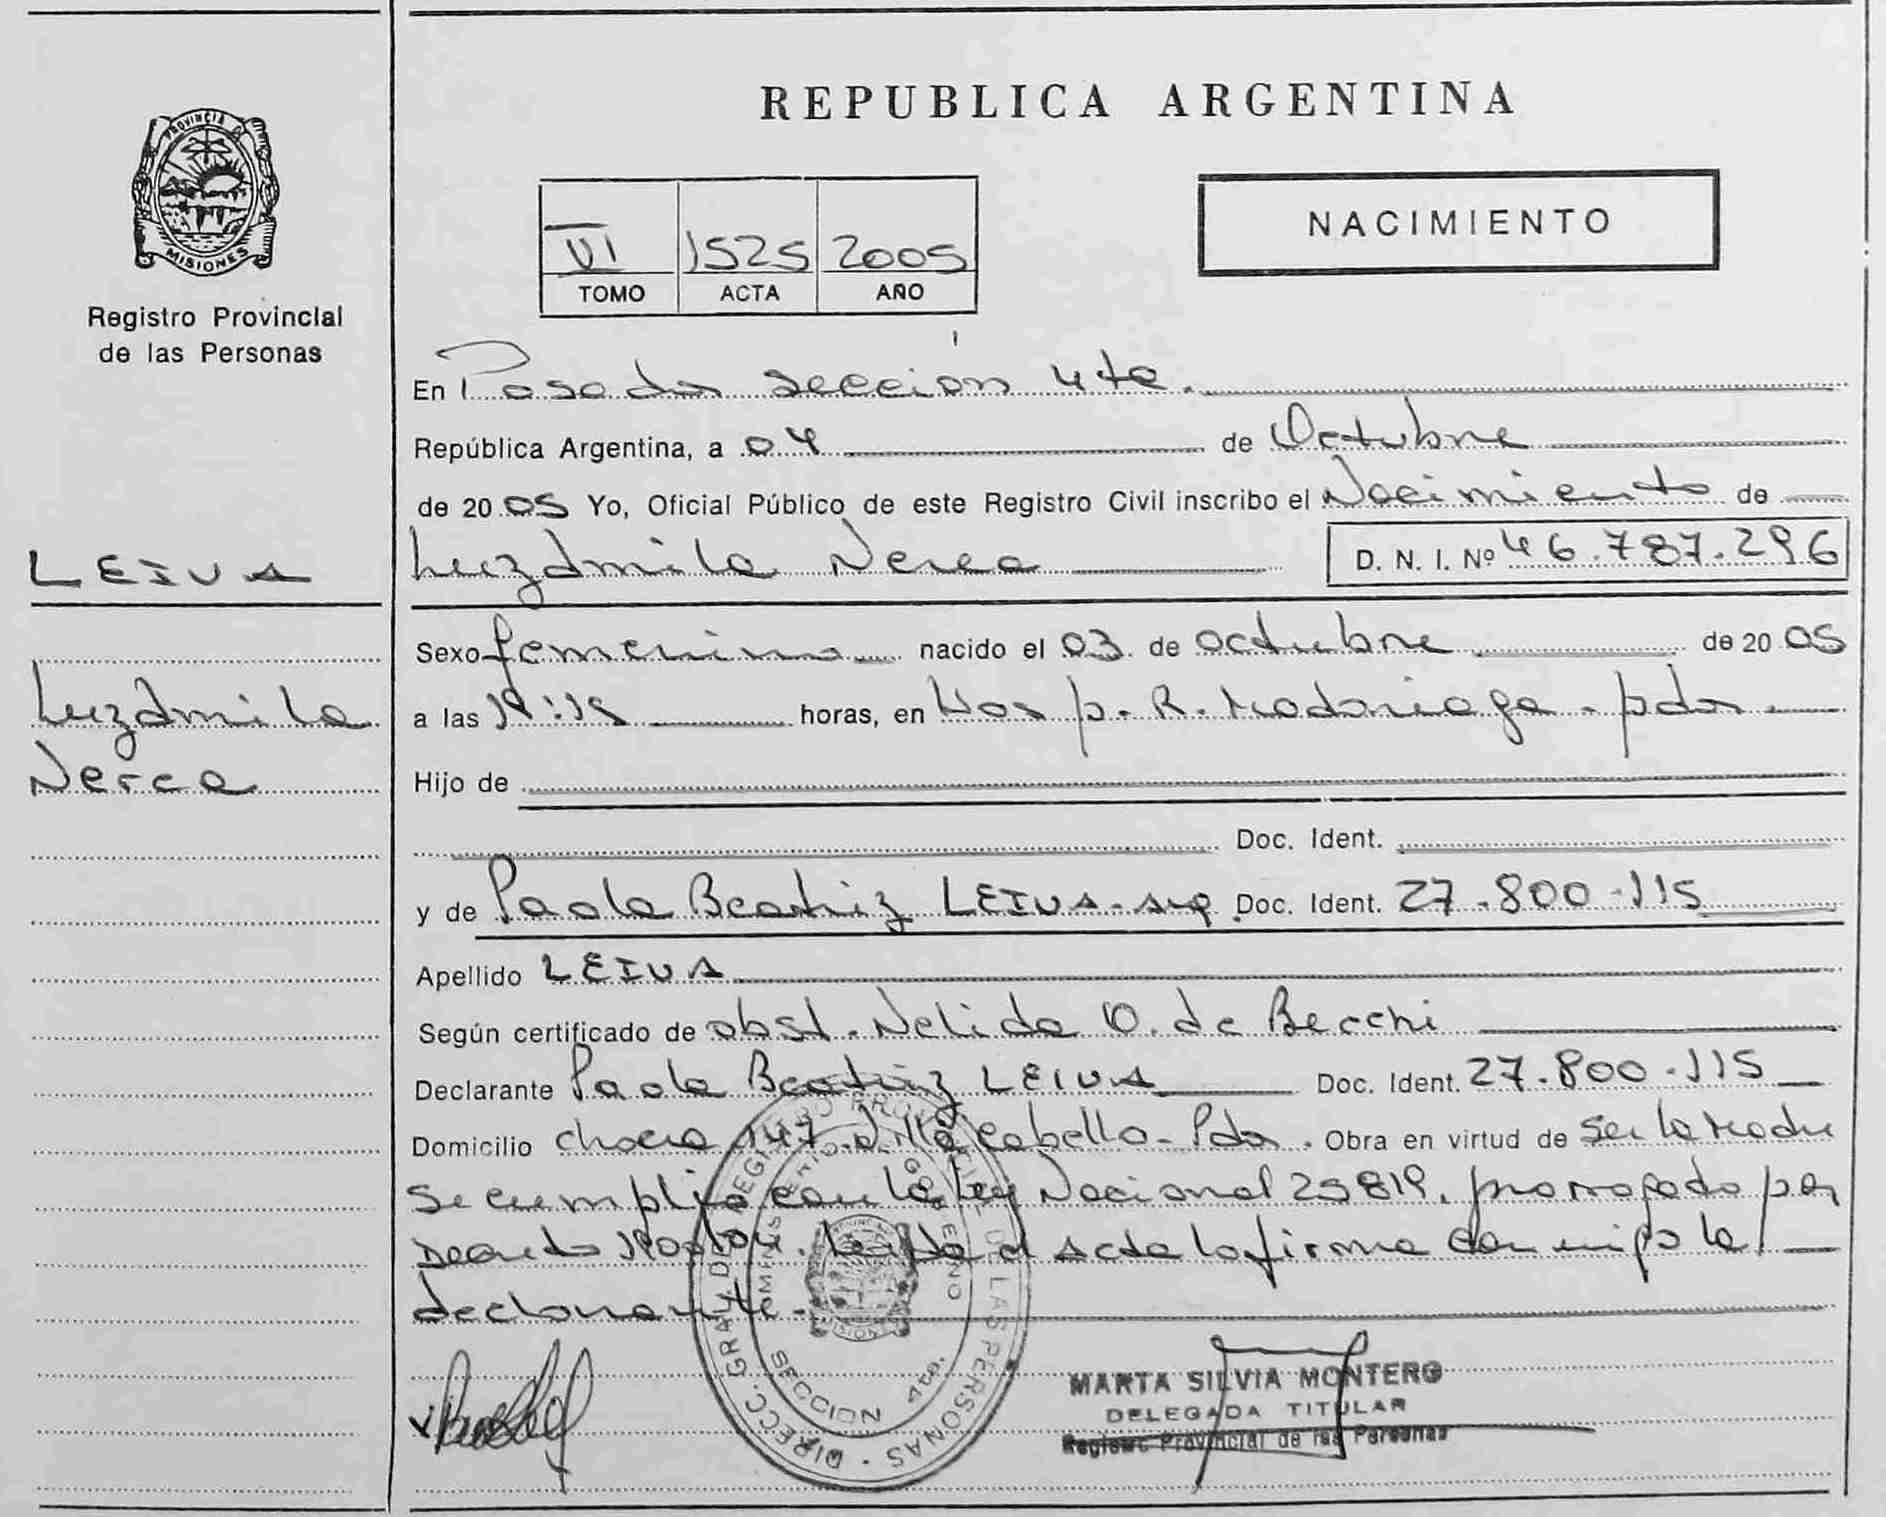 REPUBLICA ARGENTINA
PROVINCIA DE
MISIONES
Registro Provincial
de las Personas
VI 1525 2005
TOMO ACTA AÑO
NACIMIENTO
En Posadas sección 4ta.
República Argentina, a 04 de Octubre
de 2005 Yo, Oficial Público de este Registro Civil inscribo el Nacimiento de
LEIVA
Luzdmila Nerea D. N. I. Nº 46.787.296
Sexo femenino nacido el 03 de octubre de 2005
Luzdmila
Nerea
a las horas, en Hosp. R. Madariaga - pdas
Hijo de
Doc. Ident.
y de Paola Beatriz LEIVA - arg. Doc. Ident. 27.800.115
Apellido LEIVA
Según certificado de obst. Nelida O. de Becchi
Declarante Paola Beatriz LEIVA Doc. Ident. 27.800.115
Domicilio chacra 147 Villa Cabello - Pdas. Obra en virtud de Ser la Madre
Se cumplio con la Ley Nacional 25819, prorrogado por
Decreto Leida el Acta la firma conmigo la
declarante.
DIRECC. GRAL. DEL REGISTRO PROVINCIAL DE LAS PERSONAS
MINISTERIO DE GOBIERNO
SECCION 4ta.
MISIONES
MARTA SILVIA MONTERO
DELEGADA TITULAR
Registro Provincial de las Personas